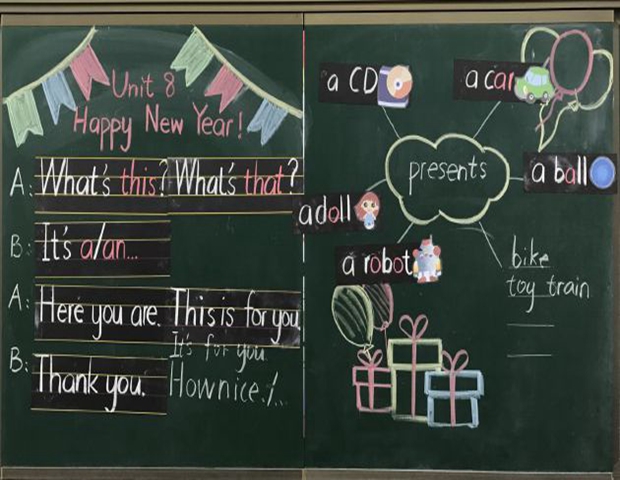 Unit 8
Happy New Year!
A: What's this? What's that?
B: It's a/an...
A: Here you are. This is for you.
It's for you
B: Thank you. How nice!/...
a CD
a car
presents
a ball
a doll
a robot
bike
toy train